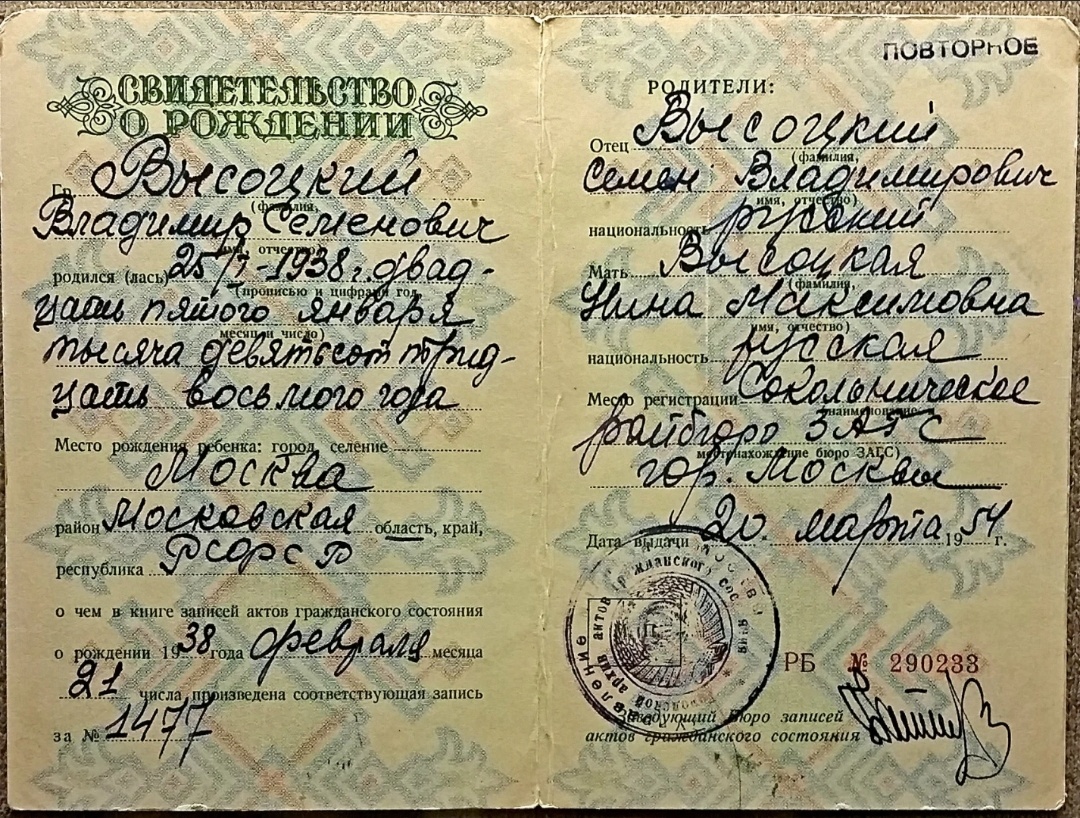 СВИДЕТЕЛЬСТВО
О РОЖДЕНИИ
Гр. Высоцкий
(фамилия,
Владимир Семенович
имя, отчество)
родился (лась) 25/I-1938 г. двад-
(прописью и цифрами год,
цать пятого января
месяц и число)
тысяча девятьсот трид-
цать восьмого года
Место рождения ребенка: город, селение
Москва
район Московская область, край,
республика РСФСР
о чем в книге записей актов гражданского состояния
о рождении 1938 года февраля месяца
21 числа, произведена соответствующая запись
за № 1477
ПОВТОРНОЕ
РОДИТЕЛИ:
Отец Высоцкий
(фамилия,
Семен Владимирович
имя, отчество)
национальность русский
Мать Высоцкая
(фамилия,
Нина Максимовна
имя, отчество)
национальность русская
Место регистрации Сокольническое
(наименование и
райбюро ЗАГС
местонахождение бюро ЗАГС)
гор. Москвы
Дата выдачи 20. марта 1954 г.
РБ № 290233
Заведующий Бюро записей
актов гражданского состояния
архив актов гражданского